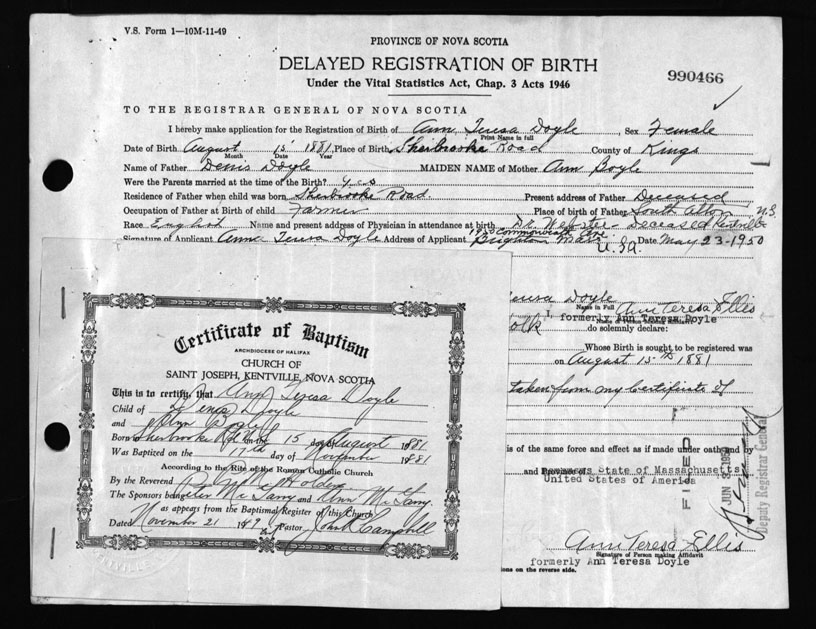 V.S. Form 1—10M-11-49
PROVINCE OF NOVA SCOTIA
DELAYED REGISTRATION OF BIRTH
Under the Vital Statistics Act, Chap. 3 Acts 1946
990466
TO THE REGISTRAR GENERAL OF NOVA SCOTIA
I hereby make application for the Registration of Birth of Ann Teresa Doyle, Sex Female
Print Name in full
Date of Birth August 15 1881, Place of Birth Sherbrooke Road County of Kings
Month Date Year
Name of Father Denis Doyle MAIDEN NAME of Mother Ann Boyle
Were the Parents married at the time of the Birth? Yes
Residence of Father when child was born Sherbrooke Road. Present address of Father Deceased
Occupation of Father at Birth of child Farmer Place of birth of Father South Alton N.S.
Race English Name and present address of Physician in attendance at birth Dr Webster Deceased Kentville
Signature of Applicant Ann Teresa Doyle Address of Applicant Commonwealth Ave Brighton Mass U.S.A. Date May 23-1950
Teresa Doyle Ann Teresa Ellis
Name in Full
I, formerly Ann Teresa Doyle
folk do solemnly declare:
Whose Birth is sought to be registered was
on August 15th 1881
taken from my certificate of
is of the same force and effect as if made under oath and by
and State of Massachusetts
United States of America
FILED
JUN 3 1950
Deputy Registrar General
Ann Teresa Ellis
Signature of Person making Affidavit
formerly Ann Teresa Doyle
ons on the reverse side.
Certificate of Baptism
ARCHDIOCESE OF HALIFAX
CHURCH OF
SAINT JOSEPH, KENTVILLE, NOVA SCOTIA
This is to certify, that Ann Teresa Doyle
Child of Denis Doyle
and Ann Boyle
Born Sherbrooke Rd on the 15 day of August 1881
Was Baptized on the 17th day of November 1881
According to the Rite of the Roman Catholic Church
By the Reverend Holden
The Sponsors being Peter McGarry and Ann McGarry
as appears from the Baptismal Register of this Church
Dated November 21 1949 Pastor John R Campbell